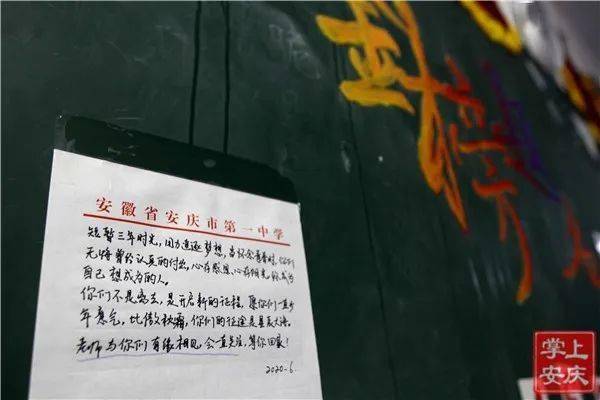 安徽省安庆市第一中学
短暂三年时光,因为追逐梦想,当怀念青春时,你们
无悔曾经认真的付出,心存感恩,心存阳光,成为
自己想成为的人。
你们不是离去,是开启新的征程,愿你们一直少
年意气,比傲秋霜,你们的征途是星辰大海。
老师与你们有缘相见,会一直关注,等你回家!
2020.6.
掌上
安庆